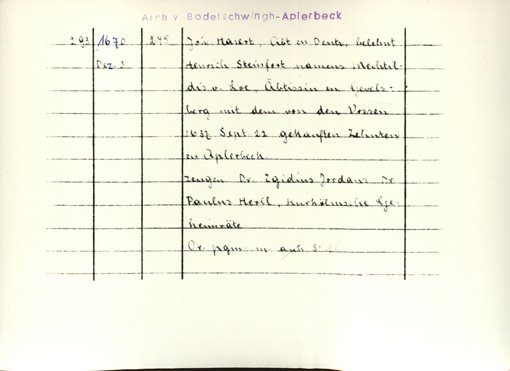 Arch v. Bodelschwingh-Aplerbeck
293 1670 245 Joh. Masert, Abt zu Deutz, belehnt
Dez. 3 Henrich Steinfort namens Mechtil-
dis v. Loe, Äbtissin in Gevels-
berg mit dem von den Vossen
1637 Sept. 22 gekauften Zehnten
zu Aplerbeck.
Zeugen Dr. Egidius Jordans, Dr.
Paulus Herll, kurkölnische Ge-
heimräte
Or. pgm. m anh